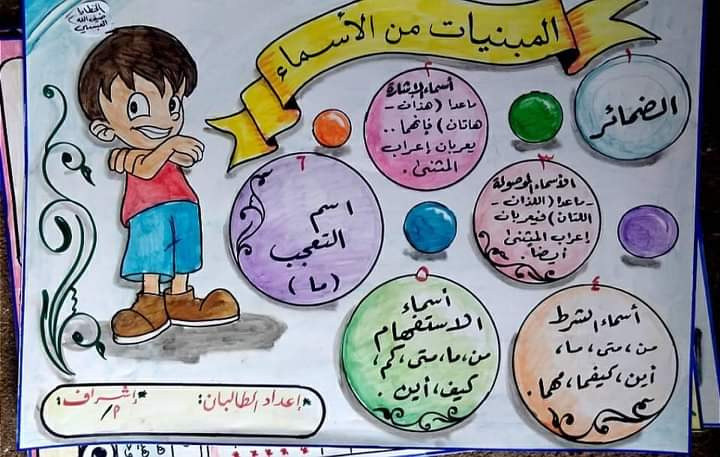 المبنيات من الأسماء
الخطاط
ضيف الله
العبسي
١
الضمائر
٢
أسماء الإشارة
ماعدا (هذان -
هاتان) فإنهما..
يعربان إعراب
المثنى.
٣
الأسماء الموصولة
- ماعدا (اللذان -
اللتان) فيعربان
إعراب المثنى
أيضاً.
٤
أسماء الشرط
من، متى، ما،
أين، كيفما، مهما.
٥
أسماء
الاستفهام
من، ما، متى، كم،
كيف، أين.
٦
اسم
التعجب
(ما)
* إعداد الطالبان:
* إشراف:
م/